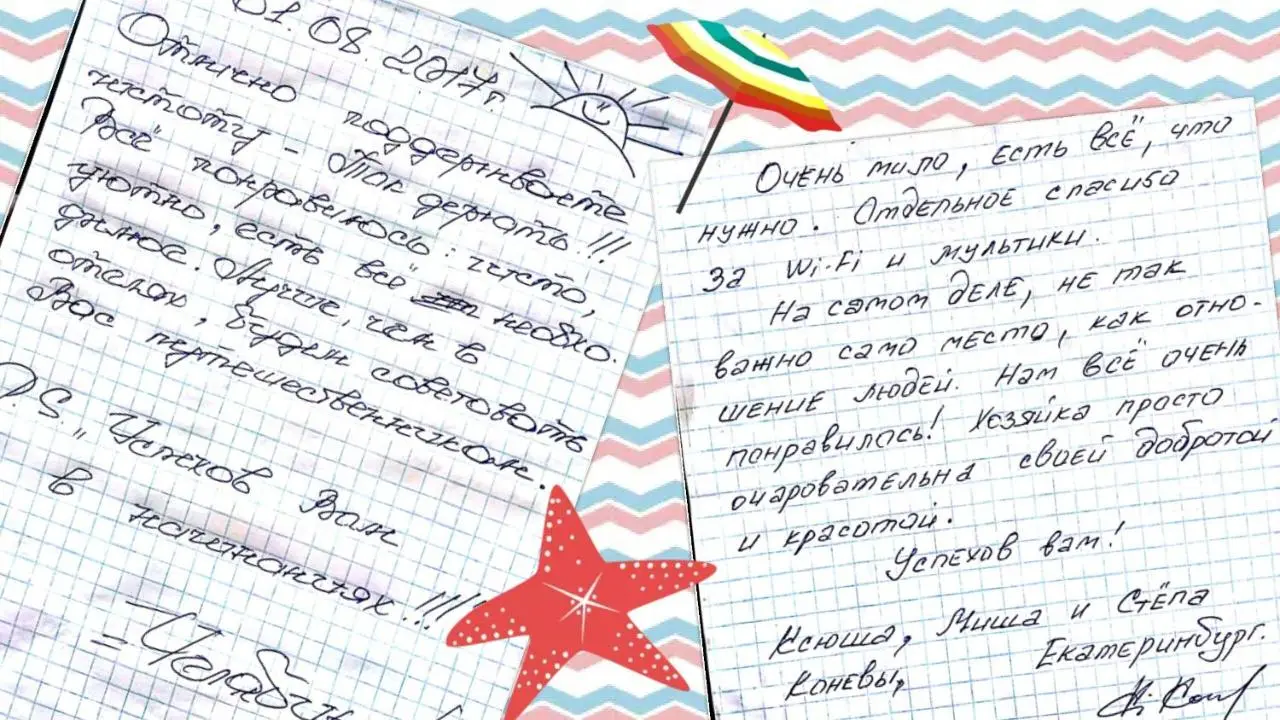 01.08.2017г.
Отлично поддерживаете
чистоту - Так держать!!!
Всё понравилось: чисто,
уютно, есть всё необхо-
димое. Лучше, чем в
отелях, будем советовать
Вас путешественникам.
P.S. Успехов Вам
в
начинаниях!!!
Очень мило, есть всё, что
нужно. Отдельное спасибо
за Wi-Fi и мультики.
На самом деле, не так
важно само место, как отно-
шение людей. Нам всё очень
понравилось! Хозяйка просто
очаровательна своей добротой
и красотой.
Успехов вам!
Ксюша, Миша и Стёпа
Коневы, Екатеринбург.